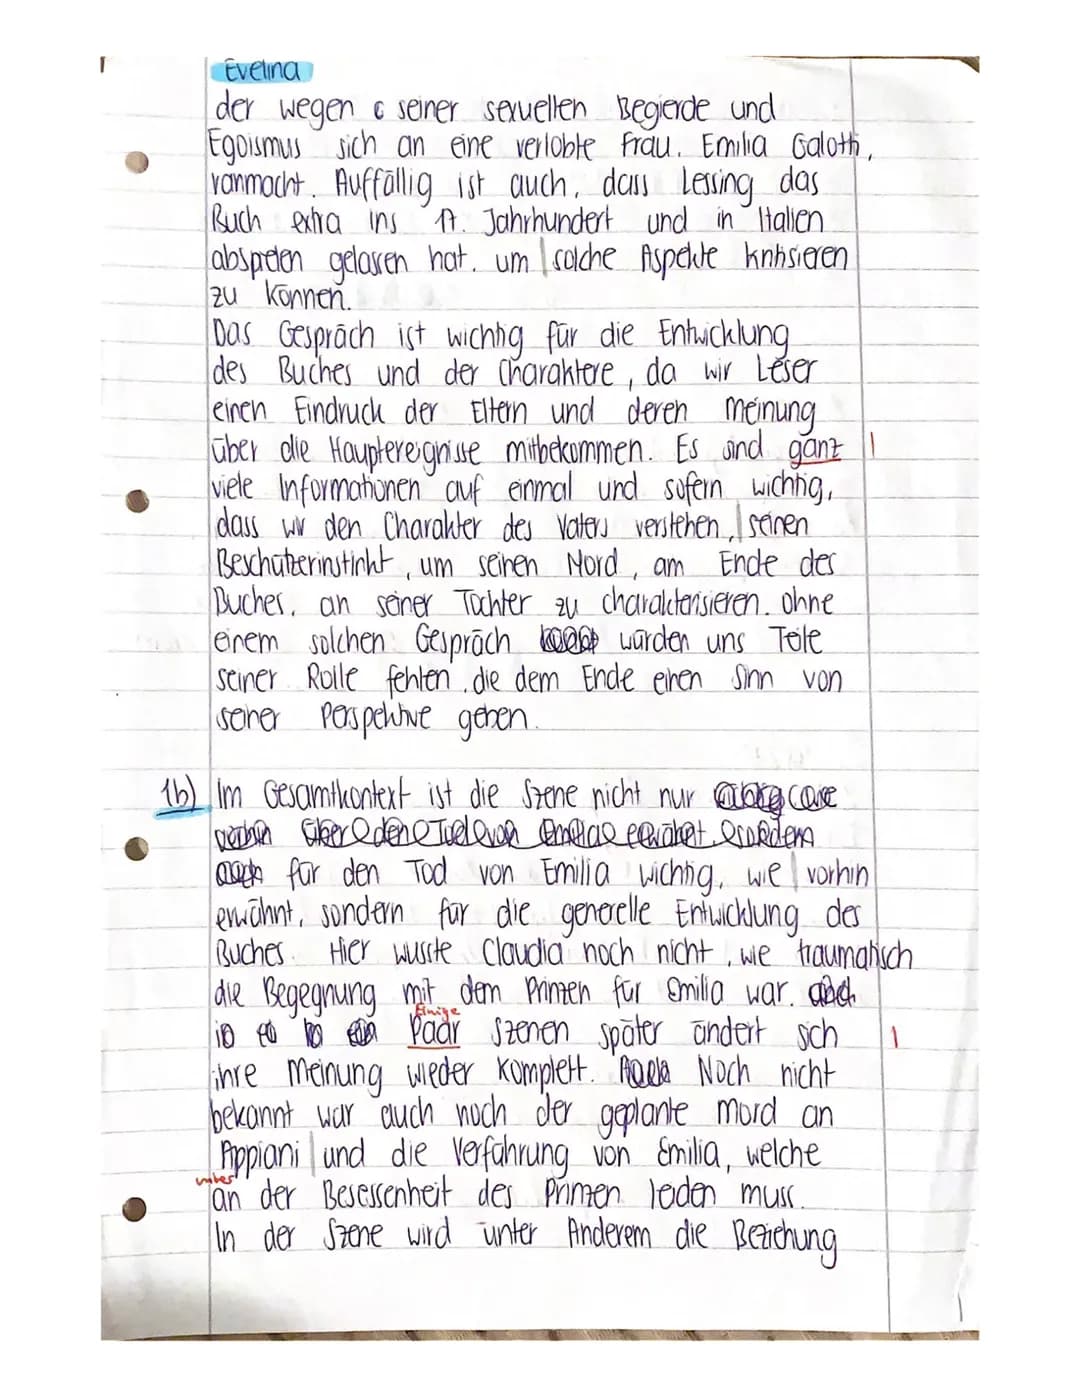 Evelina
der wegen seiner sexuellen Begierde und
Egoismus sich an eine verlobte Frau, Emilia Galotti,
ranmacht. Auffällig ist auch, dass Lessing das
Buch extra ins 17. Jahrhundert und in Italien
abspielen gelassen hat, um solche Aspekte kritisieren
zu können.
Das Gespräch ist wichtig für die Entwicklung
des Buches und der Charaktere, da wir Leser
einen Eindruck der Eltern und deren Meinung
über die Hauptereignisse mitbekommen. Es sind ganz
viele Informationen auf einmal und sofern wichtig,
dass wir den Charakter des Vaters verstehen, seinen
Beschützerinstinkt, um seinen Mord, am Ende des
Buches, an seiner Tochter zu charakterisieren. Ohne
einem solchen Gespräch würden uns Teile
seiner Rolle fehlen, die dem Ende einen Sinn von
seiner Perspektive geben.
1b) Im Gesamtkontext ist die Szene nicht nur
für den Tod von Emilia wichtig, wie vorhin
erwähnt, sondern für die generelle Entwicklung des
Buches. Hier wusste Claudia noch nicht, wie traumatisch
die Begegnung mit dem Prinzen für Emilia war.
Einige
Paar Szenen später ändert sich
ihre Meinung wieder komplett. Noch nicht
bekannt war auch noch der geplante Mord an
Appiani und die Verführung von Emilia, welche
unter
an der Besessenheit des Prinzen leiden muss.
In der Szene wird unter Anderem die Beziehung